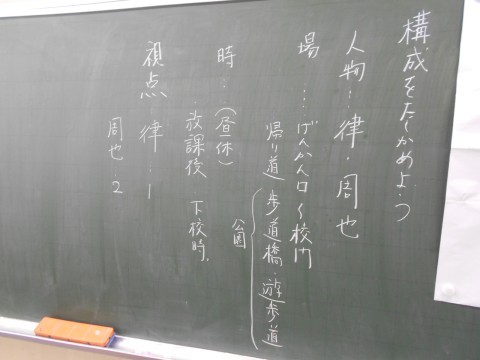 構成をたしかめよう
人物…律・周也
場……げんかん口〜校門
帰り道 歩道橋・遊歩道
公園
時…（昼休）
放課後 下校時
視点…律…1
周也…2